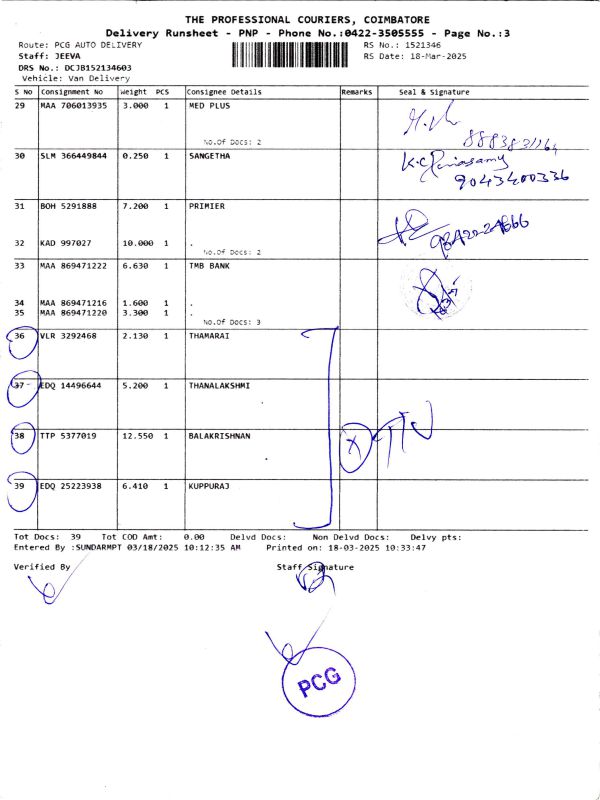 THE PROFESSIONAL COURIERS, COIMBATORE
Delivery Runsheet - PNP - Phone No.:0422-3505555 - Page No.:3
Route: PCG AUTO DELIVERY RS No.: 1521346
Staff: JEEVA RS Date: 18-Mar-2025
DRS No.: DCJB152134603
Vehicle: Van Delivery
S No Consignment No Weight PCS Consignee Details Remarks Seal & Signature
29 MAA 706013935 3.000 1 MED PLUS
No.Of Docs: 2
30 SLM 366449844 0.250 1 SANGETHA
9043400336
31 BOH 5291888 7.200 1 PRIMIER
32 KAD 997027 10.000 1 .
No.Of Docs: 2
33 MAA 869471222 6.630 1 TMB BANK
34 MAA 869471216 1.600 1 .
35 MAA 869471220 3.300 1 .
No.Of Docs: 3
36 VLR 3292468 2.130 1 THAMARAI
37 EDQ 14496644 5.200 1 THANALAKSHMI
38 TTP 5377019 12.550 1 BALAKRISHNAN
39 EDQ 25223938 6.410 1 KUPPURAJ
Tot Docs: 39 Tot COD Amt: 0.00 Delvd Docs: Non Delvd Docs: Delvy pts:
Entered By :SUNDARMPT 03/18/2025 10:12:35 AM Printed on: 18-03-2025 10:33:47
Verified By Staff Signature
PCG